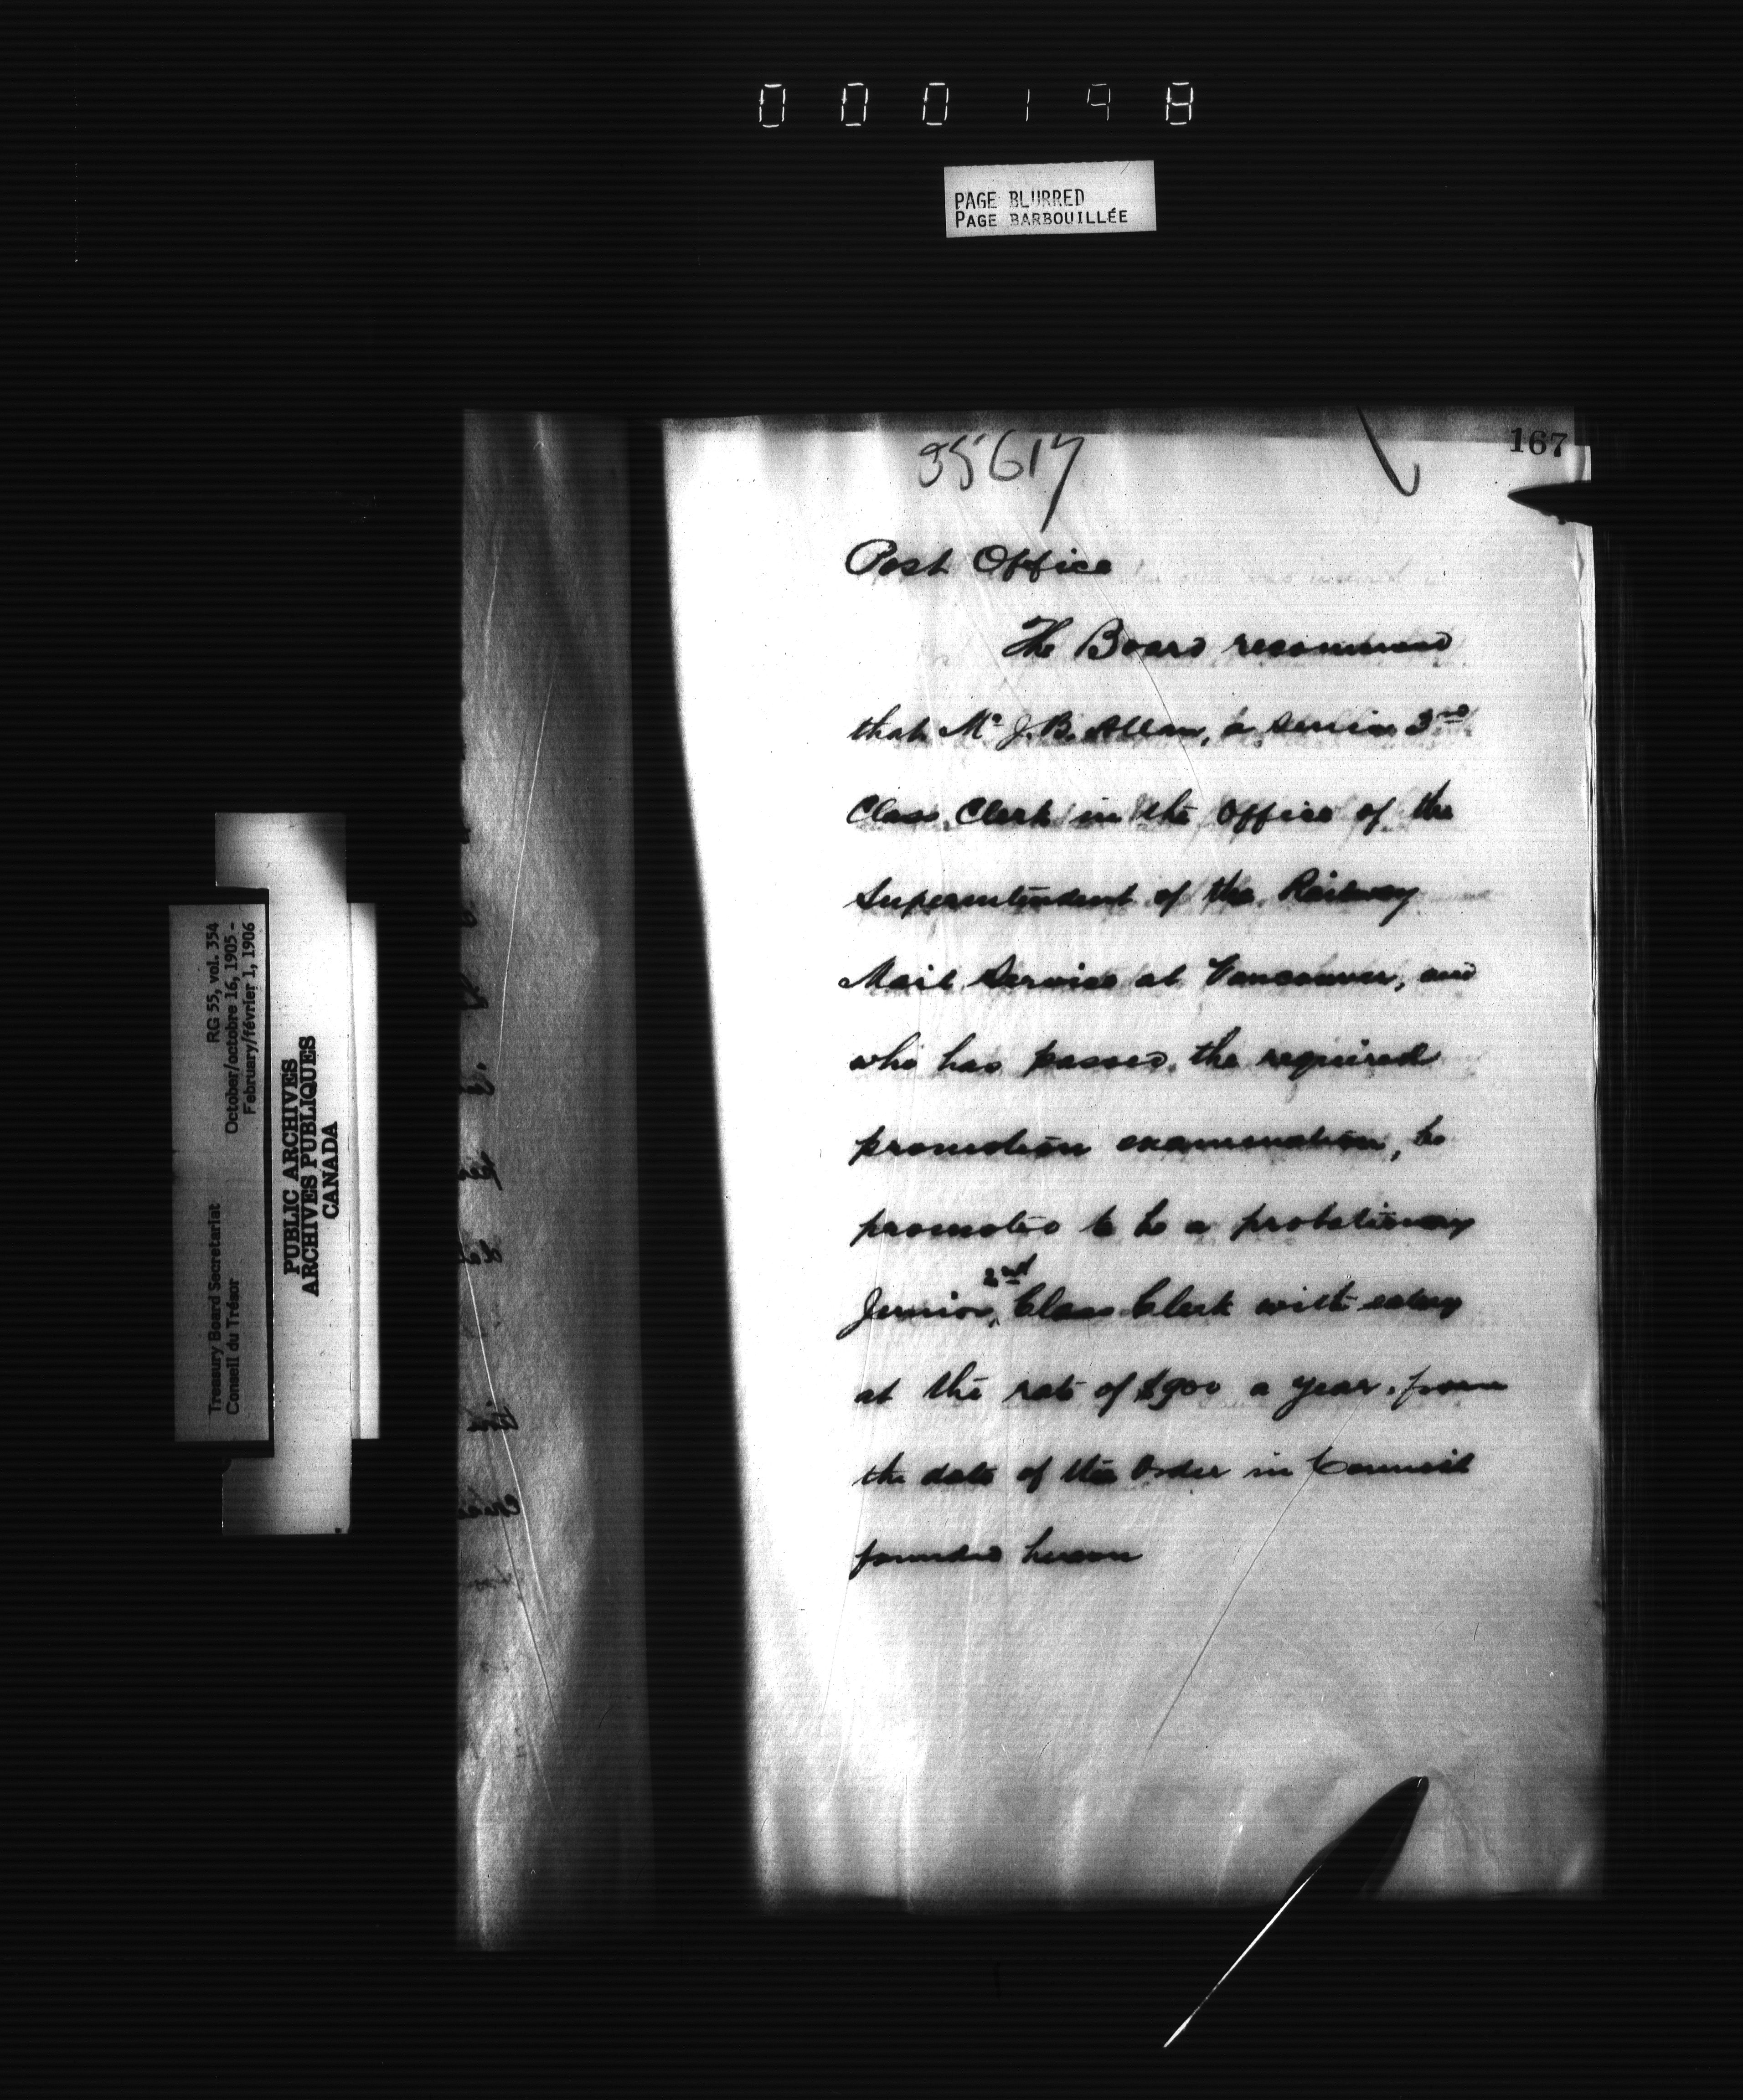 000198
PAGE BLURRED
PAGE BARBOUILLÉE
167
35617
Post Office
The Board recommend
that Mr J. B. Allan, a senior 3rd
Class Clerk in the Office of the
Superintendent of the Railway
Mail Service at Vancouver, and
who has passed the required
promotion examination, be
promoted to be a probationary
Junior 2nd Class Clerk with salary
at the rate of $900 a year, from
the date of the Order in Council
founded hereon
Treasury Board Secretariat RG 55, vol. 354
Conseil du Trésor October/octobre 16, 1905 -
February/février 1, 1906
PUBLIC ARCHIVES
ARCHIVES PUBLIQUES
CANADA